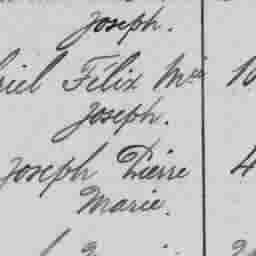 Joseph.
riel Félix Mie 10
Joseph.
Joseph Pierre 4
Marie.